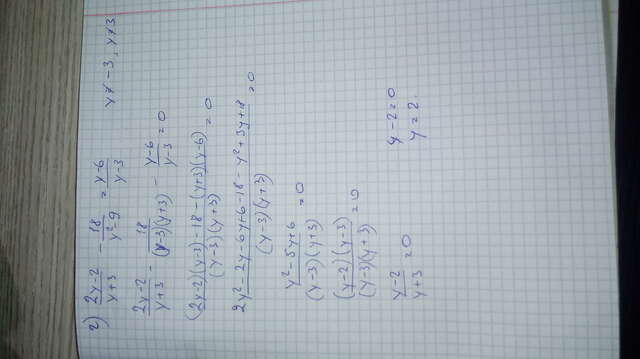 г) (2y-2)/(y+3) - 18/(y²-9) = (y-6)/(y-3)   y≠-3, y≠3
(2y-2)/(y+3) - 18/((y-3)(y+3)) - (y-6)/(y-3) = 0
((2y-2)(y-3)-18-(y+3)(y-6))/((y-3)(y+3)) = 0
(2y²-2y-6y+6-18-y²+3y+18)/((y-3)(y+3)) = 0
(y²-5y+6)/((y-3)(y+3)) = 0
((y-2)(y-3))/((y-3)(y+3)) = 0
(y-2)/(y+3) = 0   y-2=0
y=2.